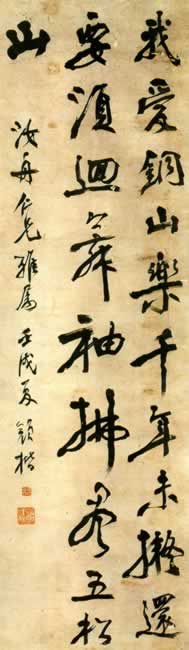 我愛銅山樂千年未擬還
要須迴舞袖拂尽五松
山
汝舟仁兄雅属 壬戌夏 鎮楷